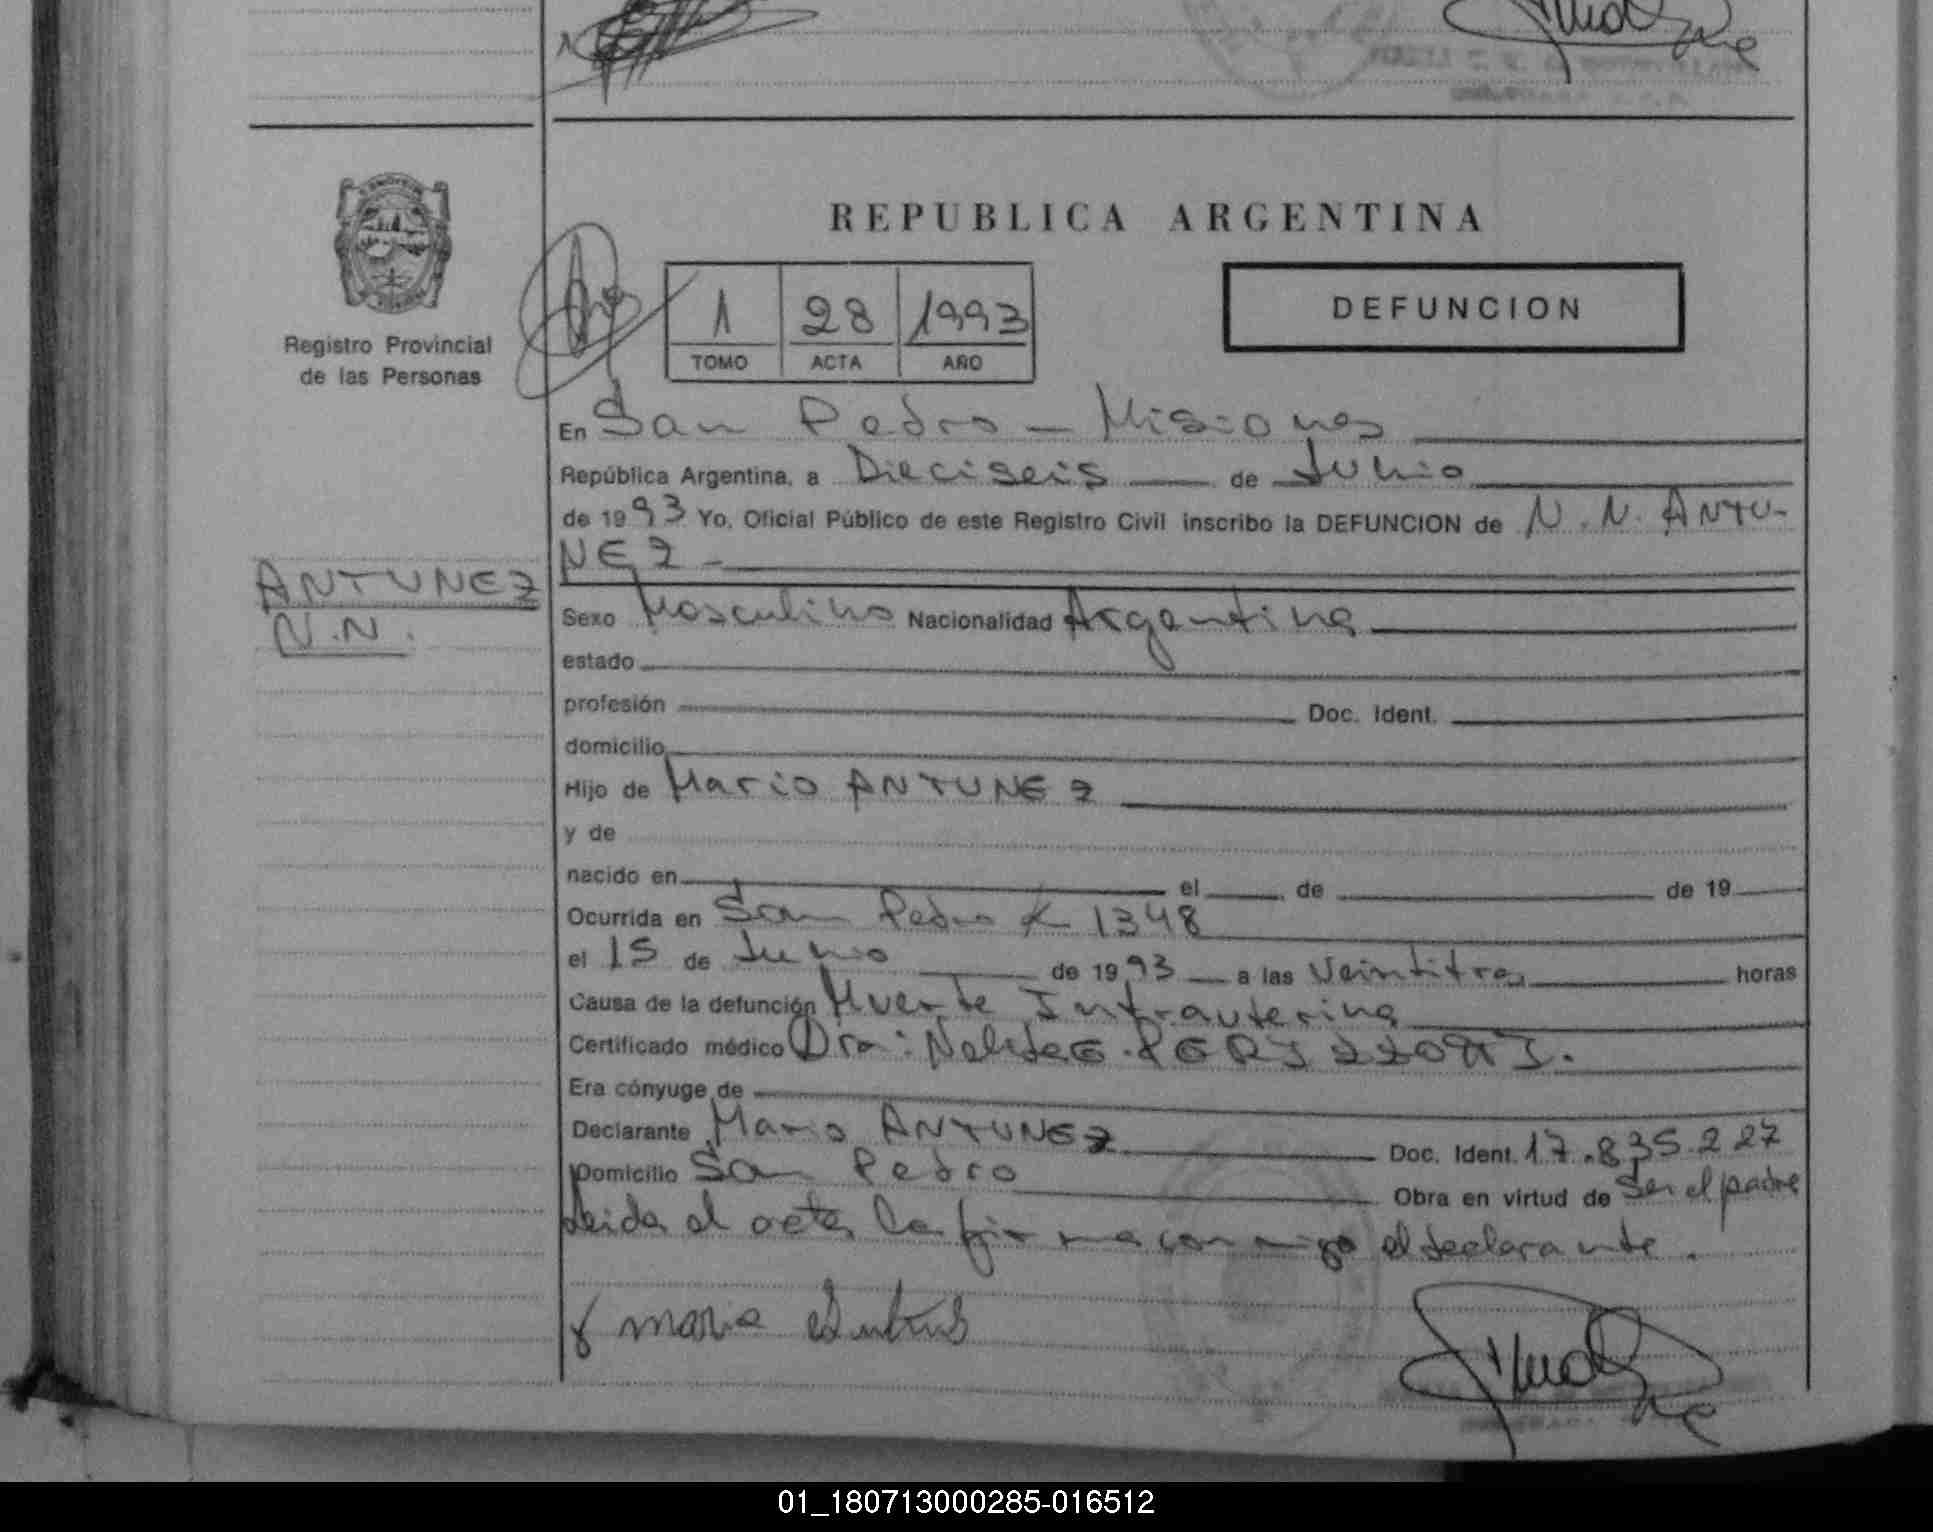 REPUBLICA ARGENTINA
Registro Provincial
de las Personas
1 28 1993
TOMO ACTA AÑO
DEFUNCION
En San Pedro - Misiones
República Argentina, a Dieciseis de Junio
de 1993 Yo, Oficial Público de este Registro Civil inscribo la DEFUNCION de N.N. ANTU-
NEZ -
ANTUNEZ
N.N.
Sexo Masculino Nacionalidad Argentina
estado
profesión Doc. Ident.
domicilio
Hijo de Mario ANTUNEZ
y de
nacido en el de de 19
Ocurrida en San Pedro K 1348
el 15 de Junio de 1993 a las Veintitres horas
Causa de la defunción Muerte Intrauterina
Certificado médico Dra:
Era cónyuge de
Declarante Mario ANTUNEZ Doc. Ident. 17.835.227
Domicilio San Pedro Obra en virtud de Ser el padre
Leida el acta la firma conmigo el declarante.
01_180713000285-016512